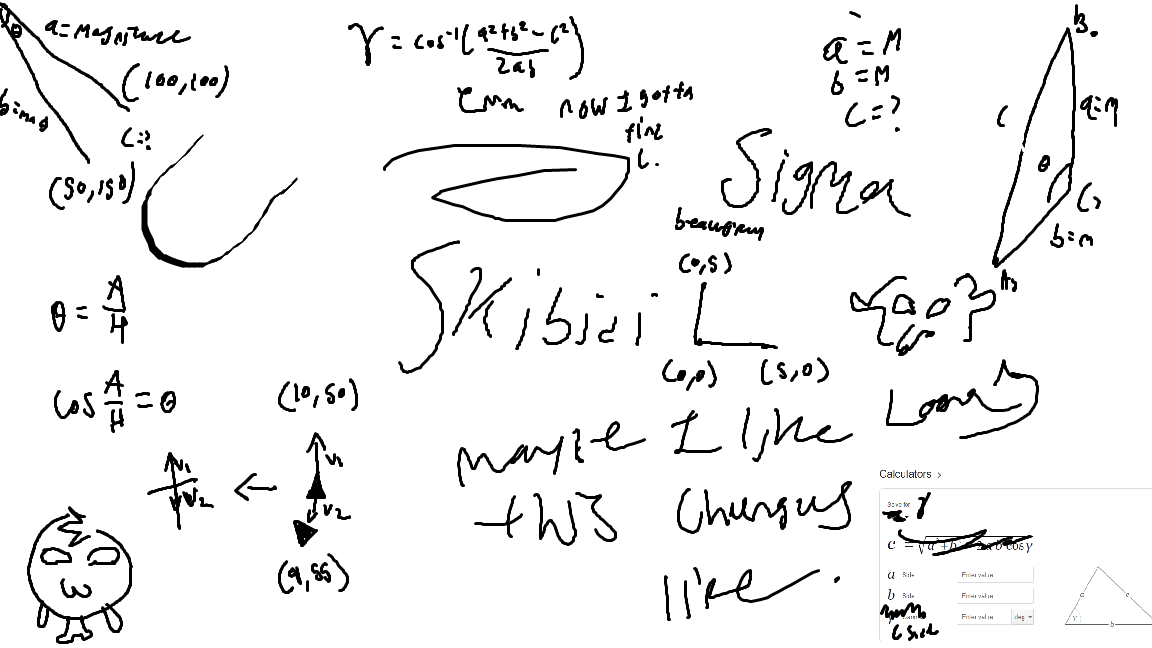 θ
a=Magnitude
(100,100)
b=mag
C=?
(50,150)
γ = cos⁻¹(a²+b²-c²/2ab)
now I gotta
find
C.
a=M
b=M
C=?
B.
c
a=M
θ
C>
b=m
A>
Sigma
(0,5)
Skibidi
(0,0) (5,0)
θ = A/H
cos A/H = θ
(10,50)
V1
V2
V1
V2
(9,55)
maybe I like
this Chungus
life.
Calculators >
Solve for γ
c = √a²+b²-2ab cosγ
a Side Enter value
b Side Enter value
Enter value deg
C side
a
c
γ
b